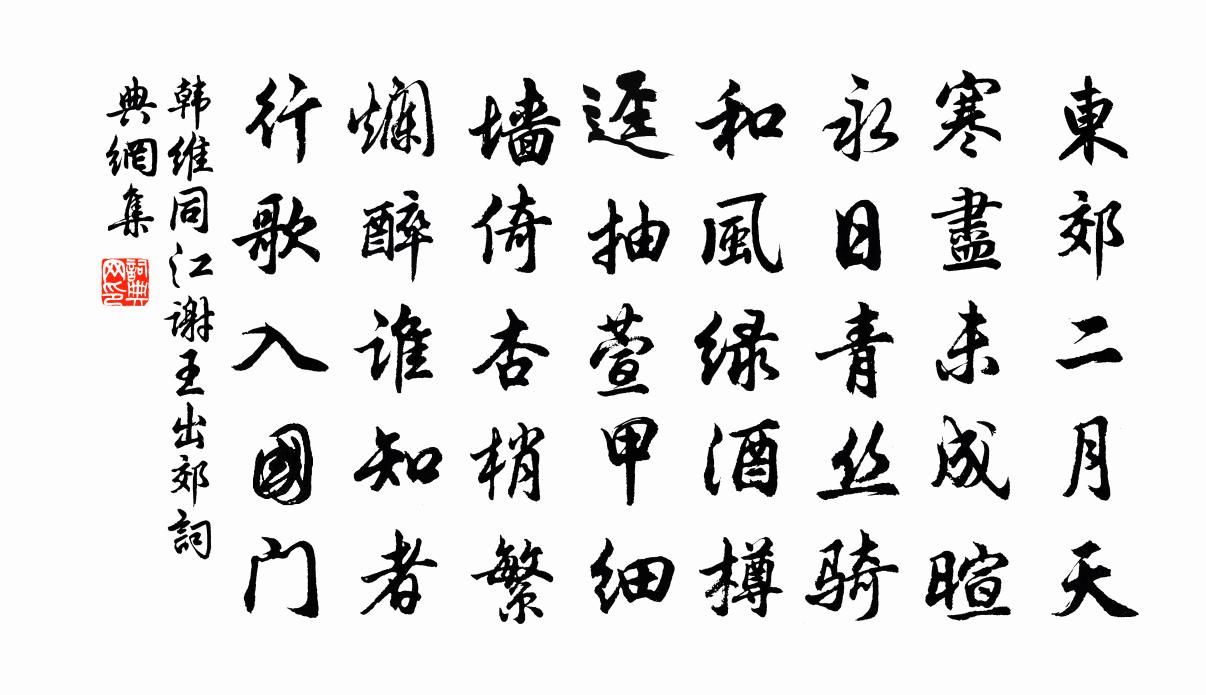 東郊二月天
寒盡未成暄
永日青丝骑
和風绿酒樽
逕抽萱甲细
墙倚杏梢繁
爛醉谁知者
行歌入國门
韩维同江谢王出郊詞
典網集
詞典
网印